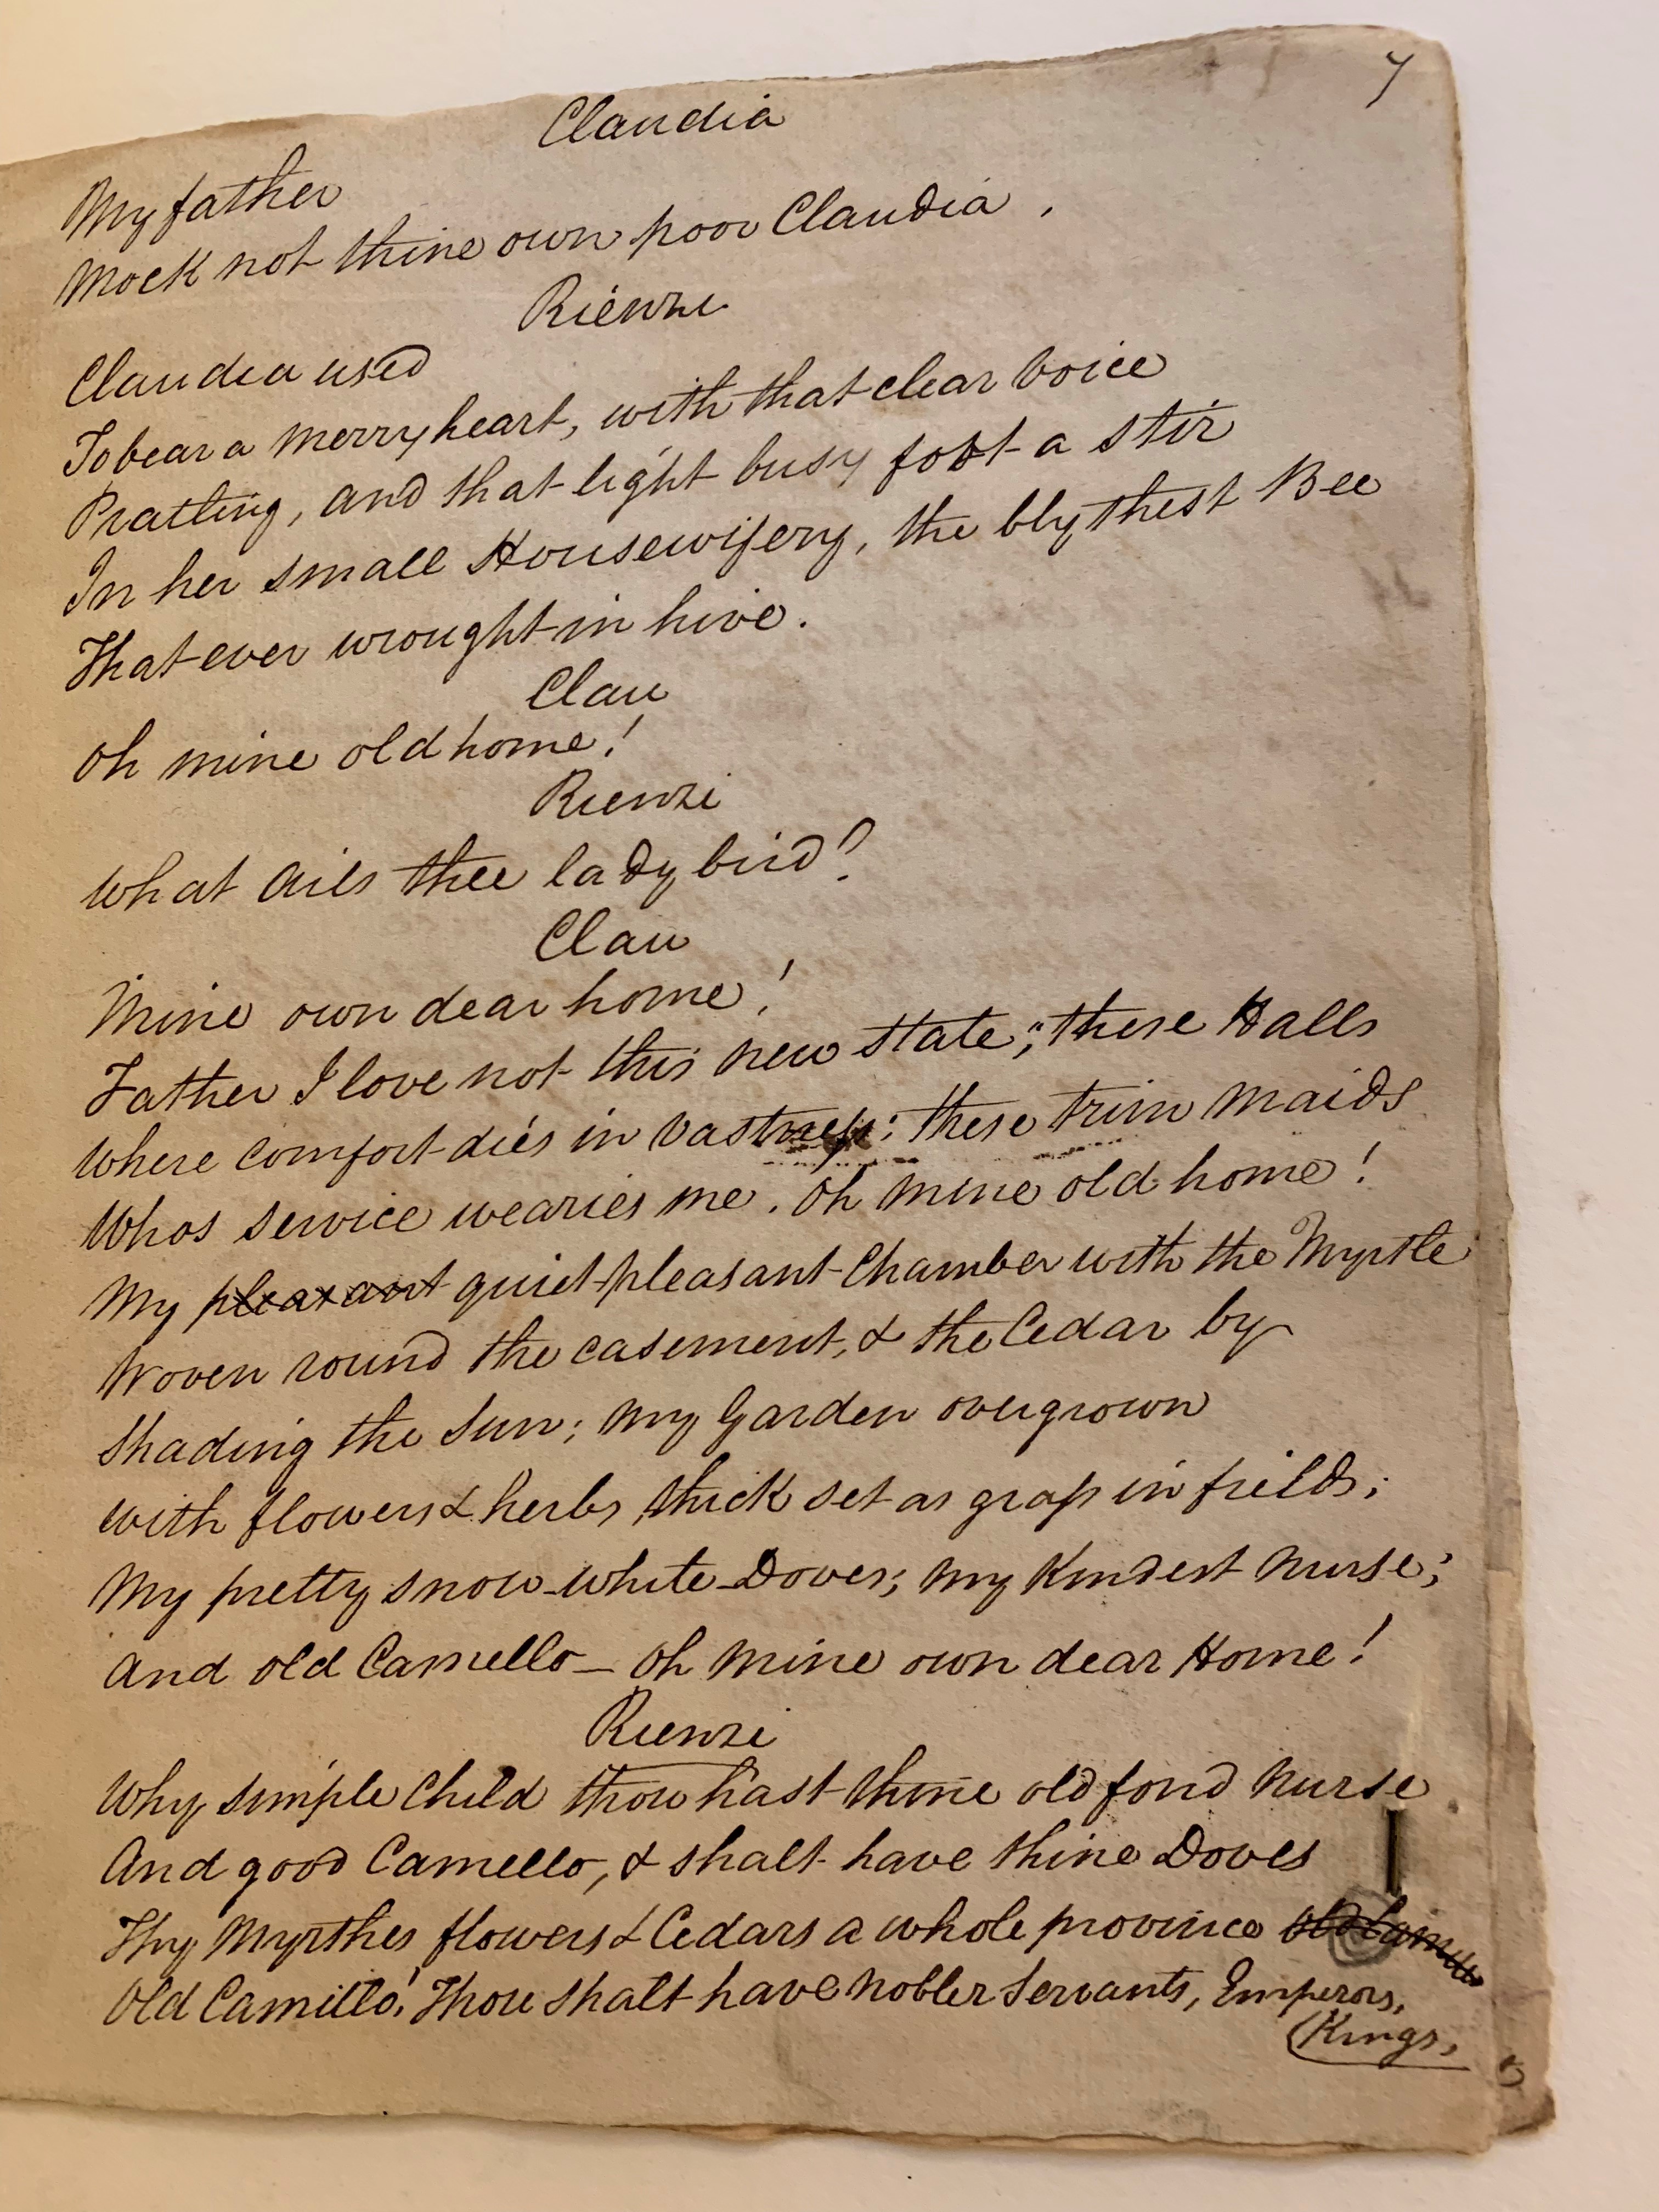 7
Claudia
My father
Mock not thine own poor Claudia.
Rienzi
Claudia used
To bear a merry heart, with that clear voice
Pratling, and that light busy foot a stir
In her small Housewifery, the blythest Bee
That ever wrought in hive.
Clau
Oh mine old home!
Rienzi
What ails thee lady bird?
Clau
Mine own dear home!
Father I love not this new state; these Halls
Where comfort dies in vastness: these trim maids
Whos service wearies me. Oh mine old home!
My pleasant quiet pleasant Chamber with the Myrtle
Woven round the casement, & the Cedar by
Shading the Sun; my Garden overgrown
with flowers & herbs, thick set as grass in fields;
My pretty snow-white Doves; my kindest nurse;
And old Camello – Oh mine own dear Home!
Rienzi
Why simple Child thou hast thine old fond nurse
And good Camello, & shalt have thine Doves
Thy Myrthes flowers & Cedars a whole province
Old Camillo! Thou shalt have nobler Servants, Emperors,
Kings,